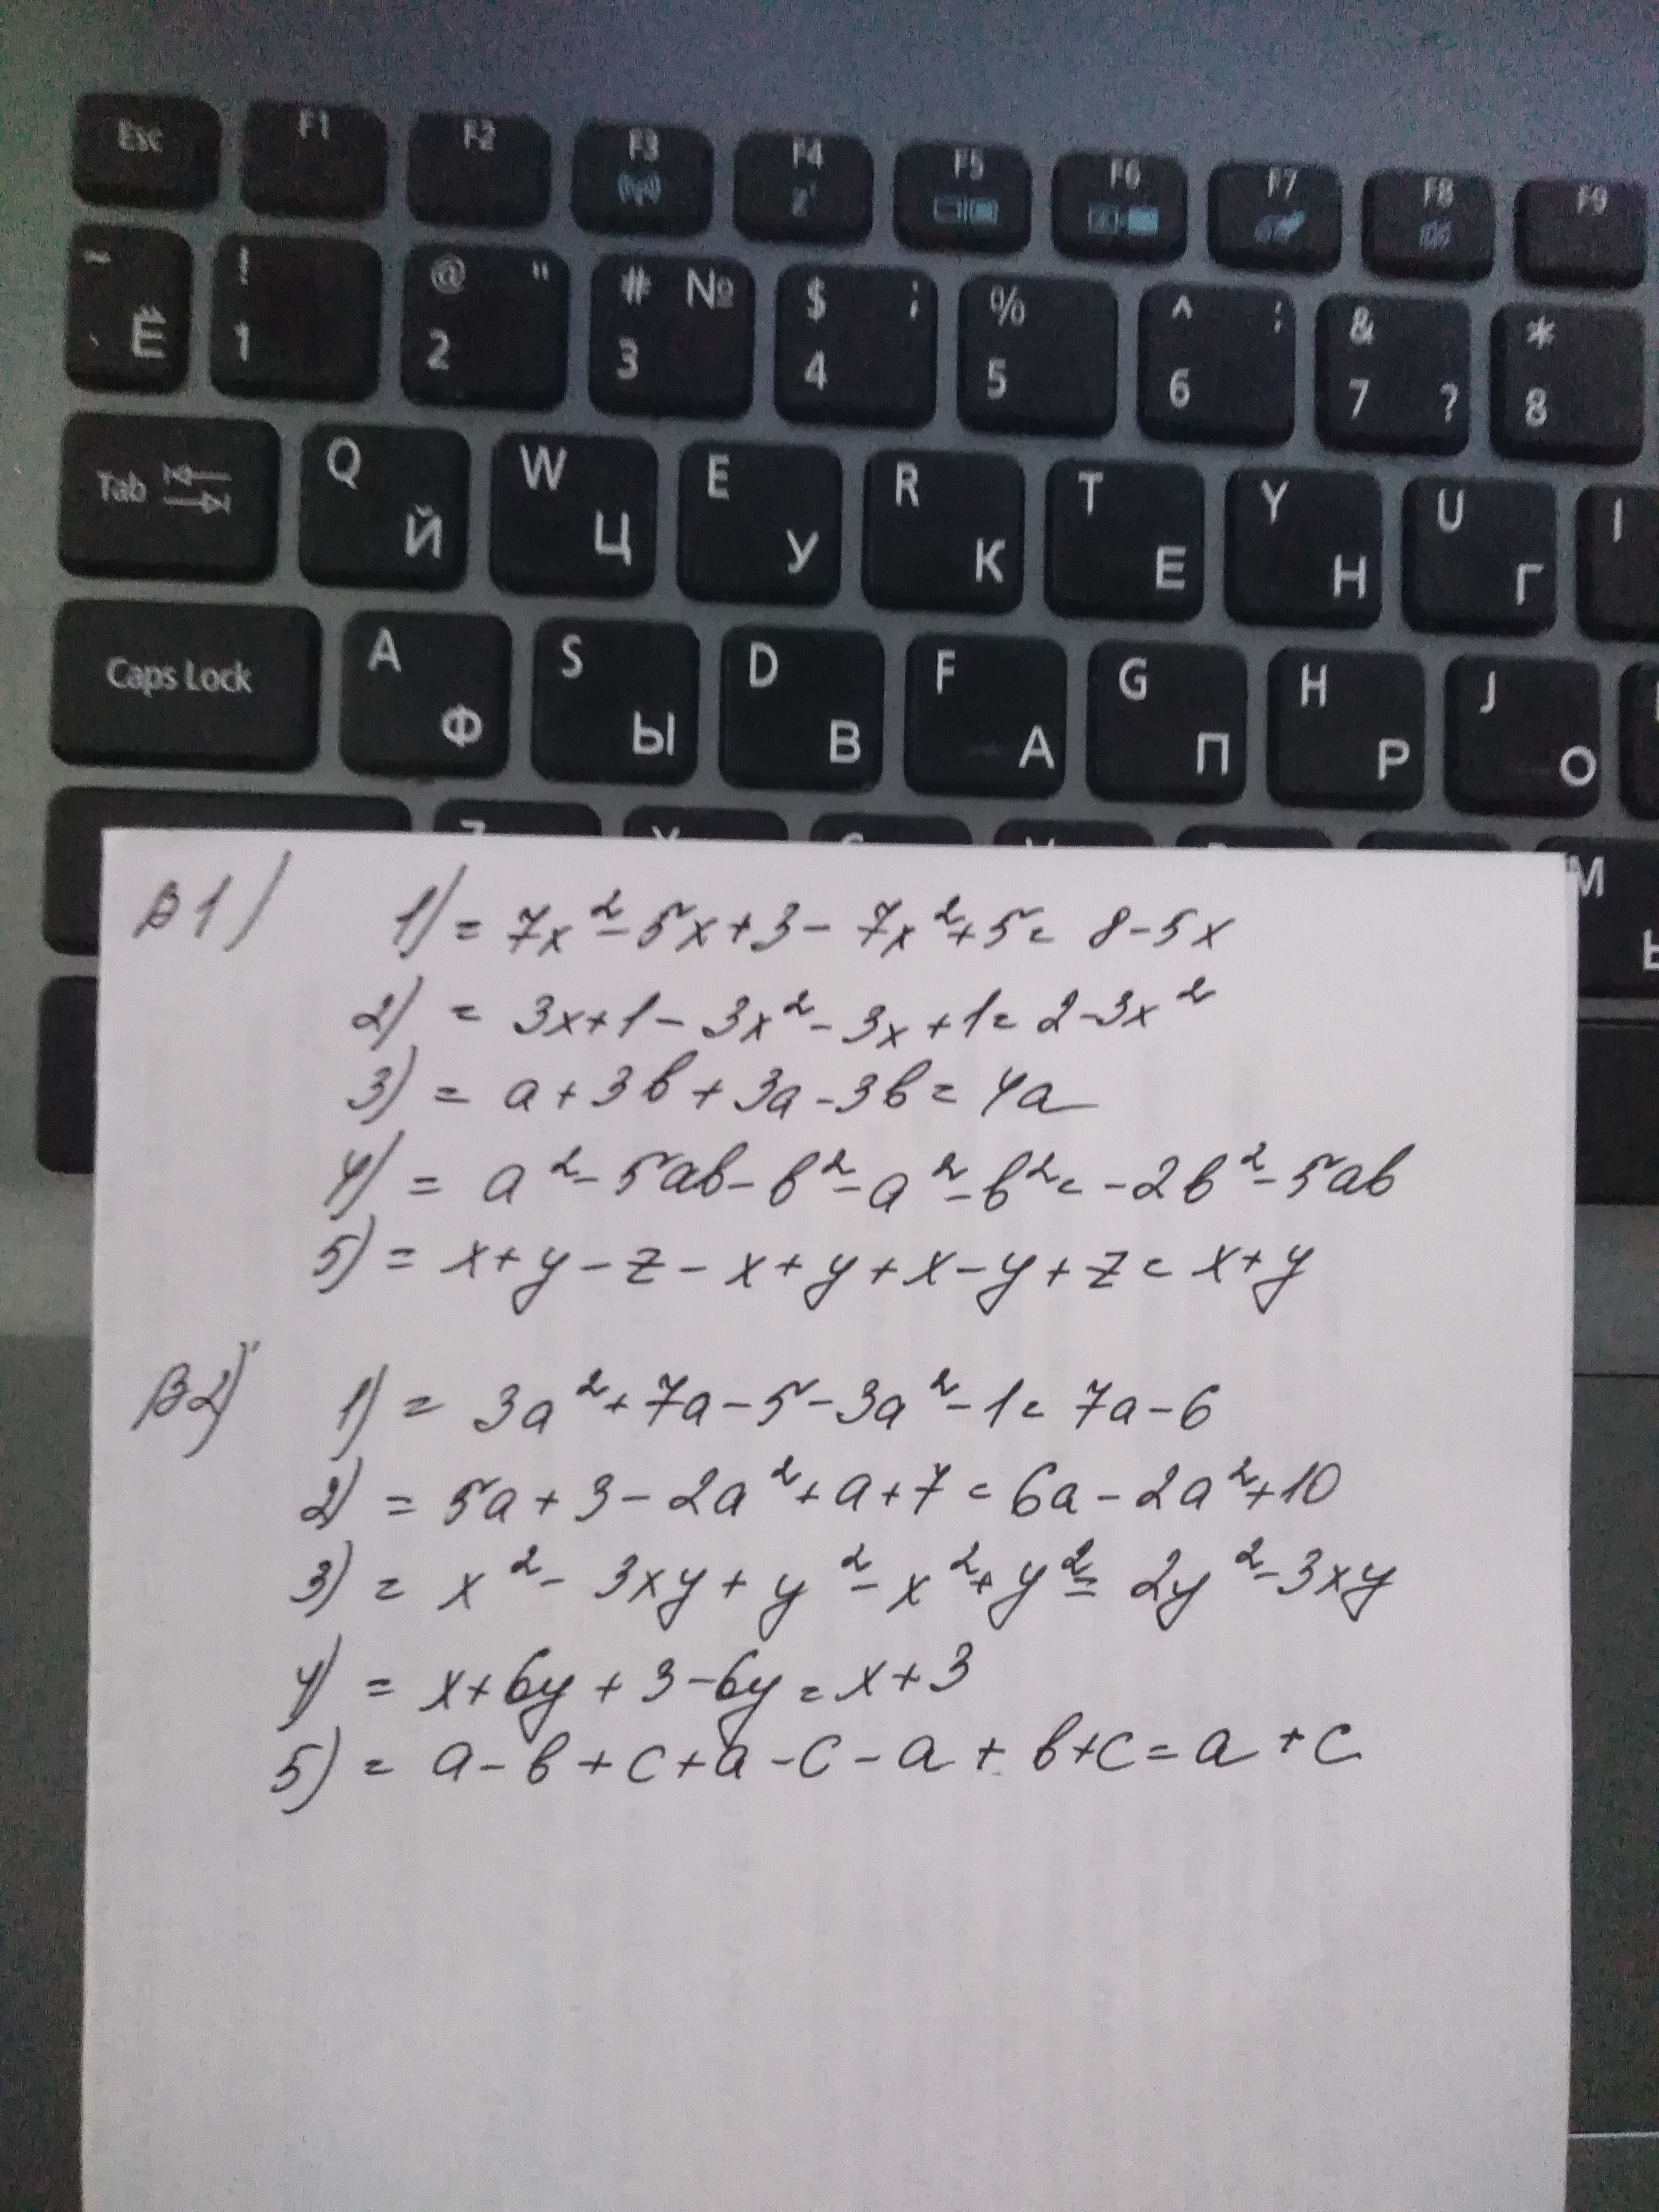 Esc F1 F2 F3 F4 F5 F6 F7 F8 F9
~ ` Ё ! 1 @ " 2 # № 3 $ ; 4 % 5 ^ : 6 & 7 ? * 8
Tab Q Й W Ц E У R К T Е Y Н U Г I
Caps Lock A Ф S Ы D В F А G П H Р J О
M Ь
В1) 1) = 7x² - 5x + 3 - 7x² + 5 = 8 - 5x
2) = 3x + 1 - 3x² - 3x + 1 = 2 - 3x²
3) = a + 3b + 3a - 3b = 4a
4) = a² - 5ab - b² - a² - b² = -2b² - 5ab
5) = x + y - z - x + y + x - y + z = x + y
В2) 1) = 3a² + 7a - 5 - 3a² - 1 = 7a - 6
2) = 5a + 3 - 2a² + a + 7 = 6a - 2a² + 10
3) = x² - 3xy + y² - x² + y² = 2y² - 3xy
4) = x + 6y + 3 - 6y = x + 3
5) = a - b + c + a - c - a + b + c = a + c